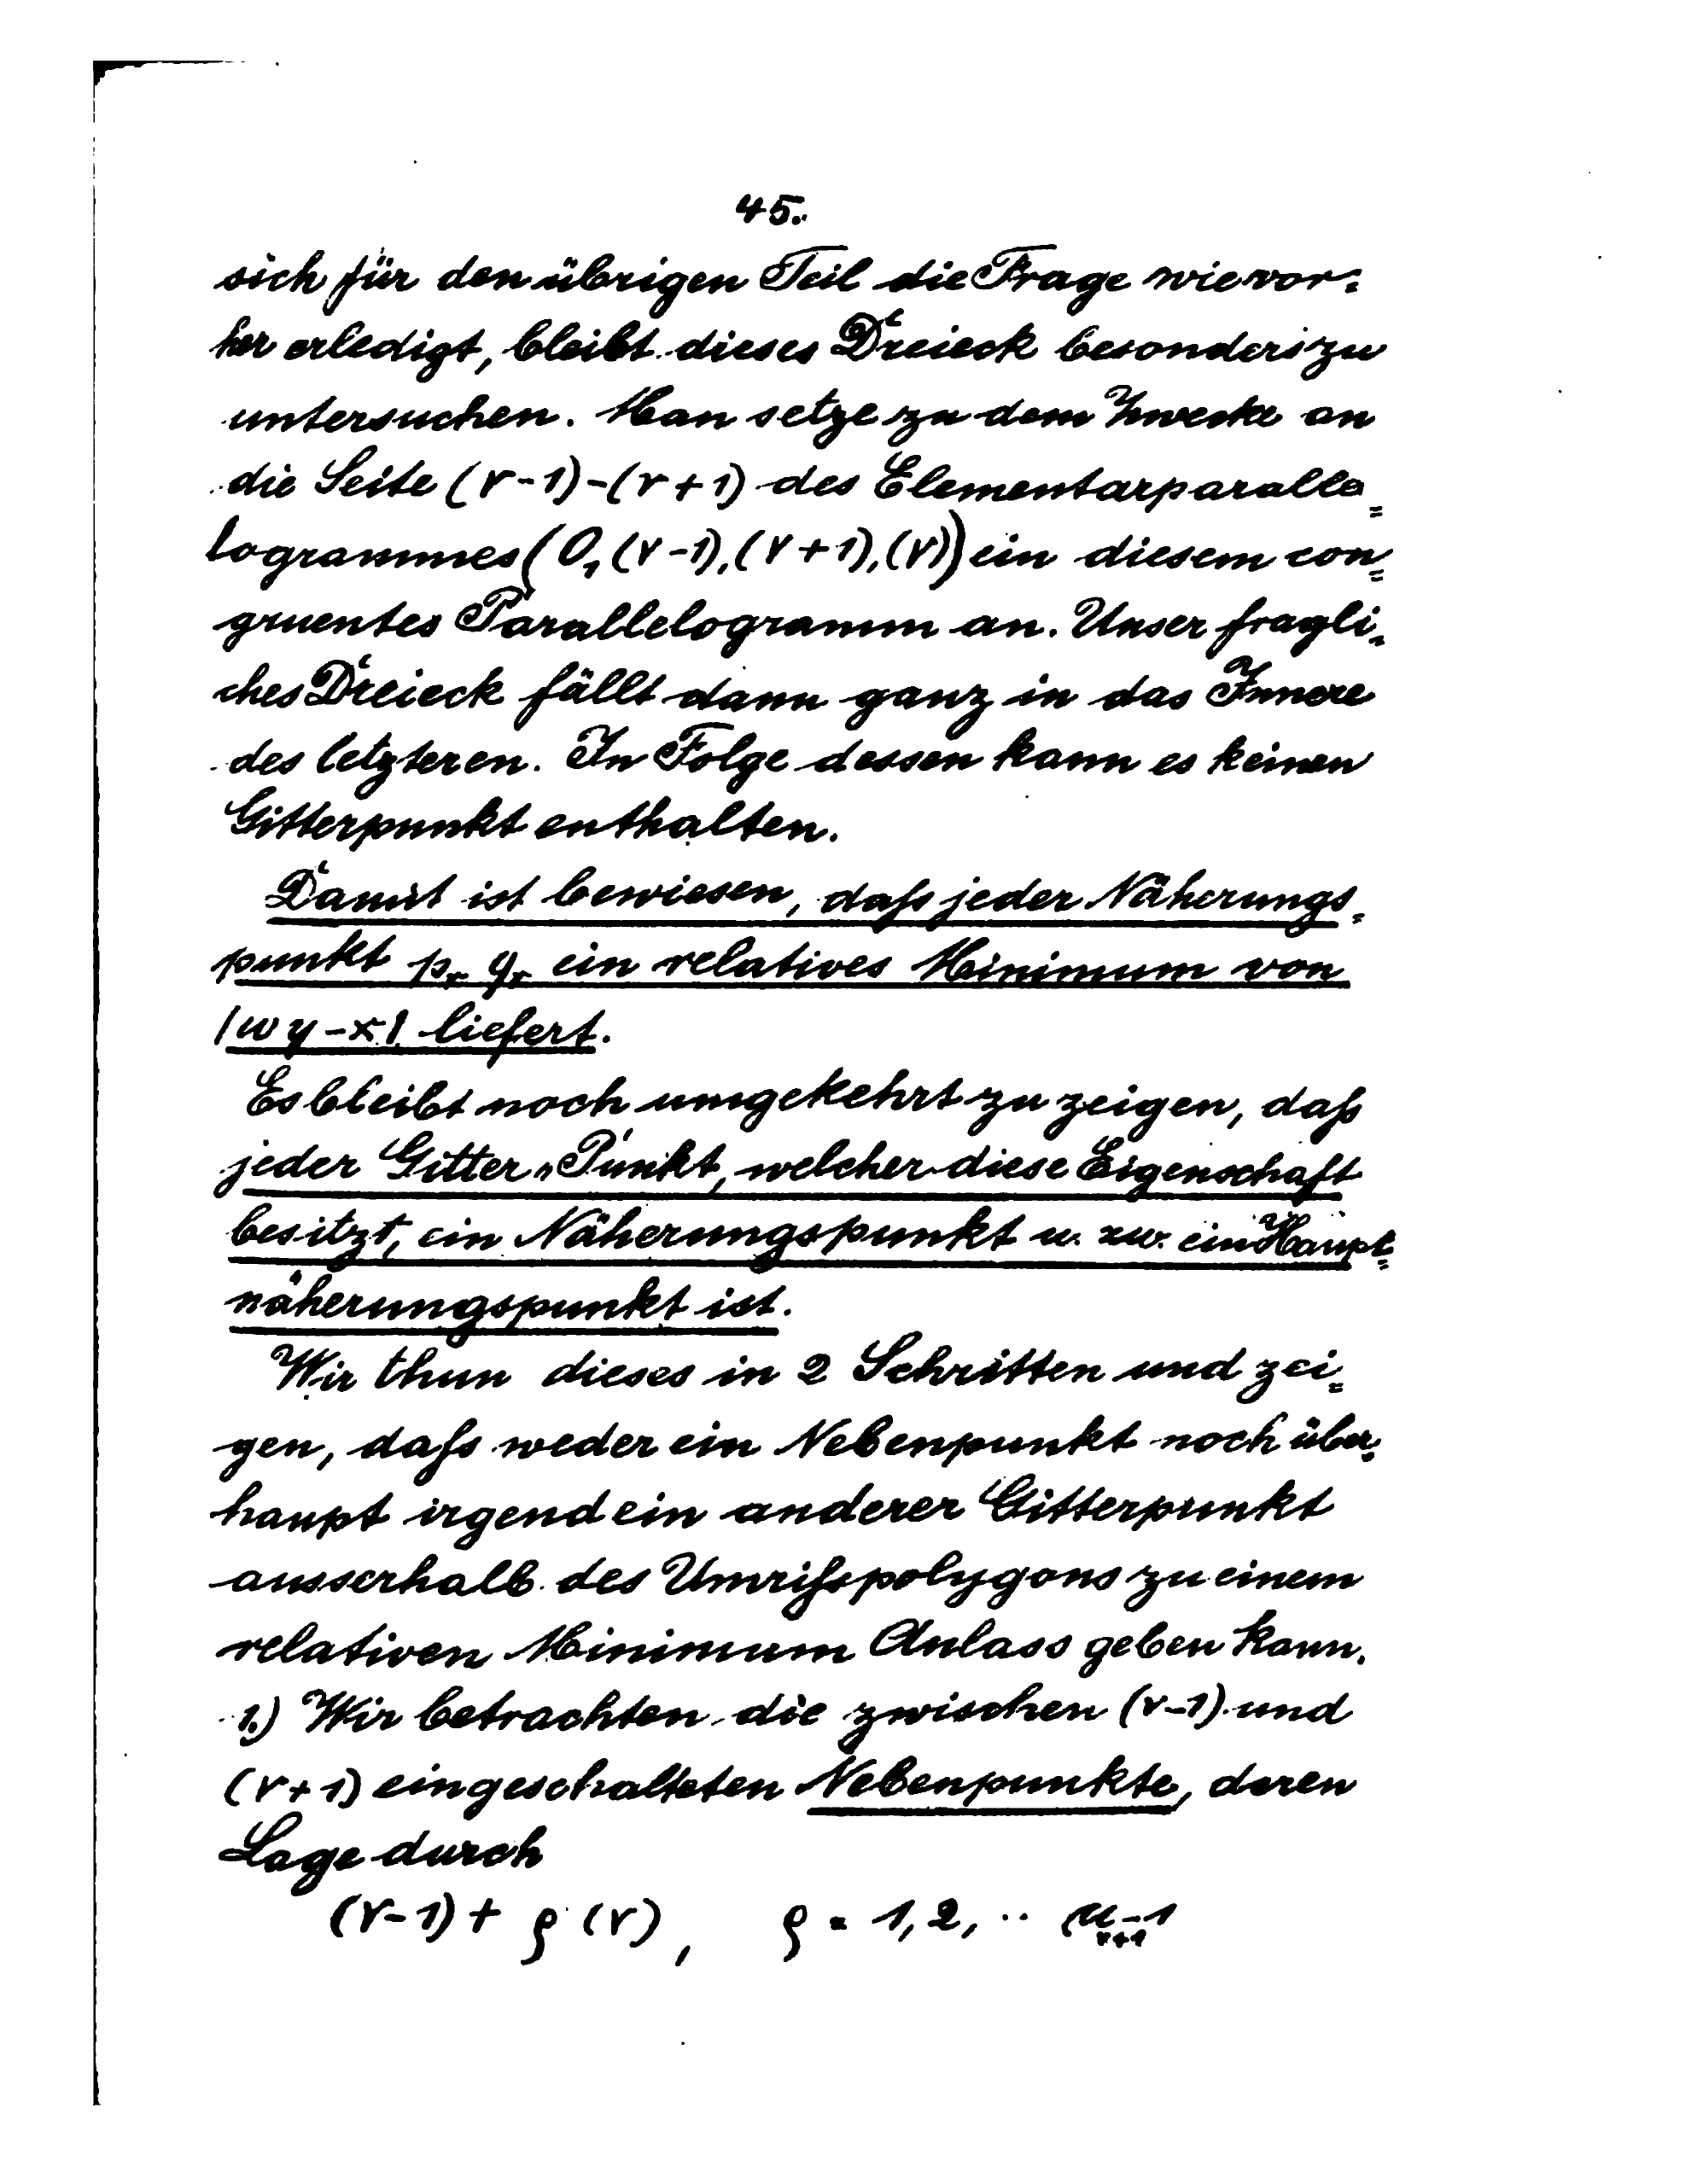 45.
sich für den übrigen Teil die Frage wie vor=
her erledigt, bleibt dieses Dreieck besonders zu
untersuchen. Man setze zu dem Zwecke an
die Seite (r-1)-(r+1) des Elementarparalle=
logrammes (0,(r-1),(r+1),(r)) ein diesem con=
gruentes Parallelogramm an. Unser fragli=
ches Dreieck fällt dann ganz in das Innere
des letzteren. In Folge dessen kann es keinen
Gitterpunkt enthalten.
Damit ist bewiesen, daſs jeder Näherungs=
punkt pᵣ qᵣ ein relatives Minimum von
|ωy-x| liefert.
Es bleibt noch umgekehrt zu zeigen, daſs
jeder Gitter„Punkt, welcher diese Eigenschaft
besitzt, ein Näherungspunkt u. zw. ein Haupt=
näherungspunkt ist.
Wir thun dieses in 2 Schritten und zei=
gen, daſs weder ein Nebenpunkt noch über=
haupt irgend ein anderer Gitterpunkt
ausserhalb des Umriſspolygons zu einem
relativen Minimum Anlass geben kann.
1.) Wir betrachten die zwischen (r-1) und
(r+1) eingeschalteten Nebenpunkte, deren
Lage durch
(r-1) + ρ (r), ρ = 1,2, .. μᵣ₊₁-1